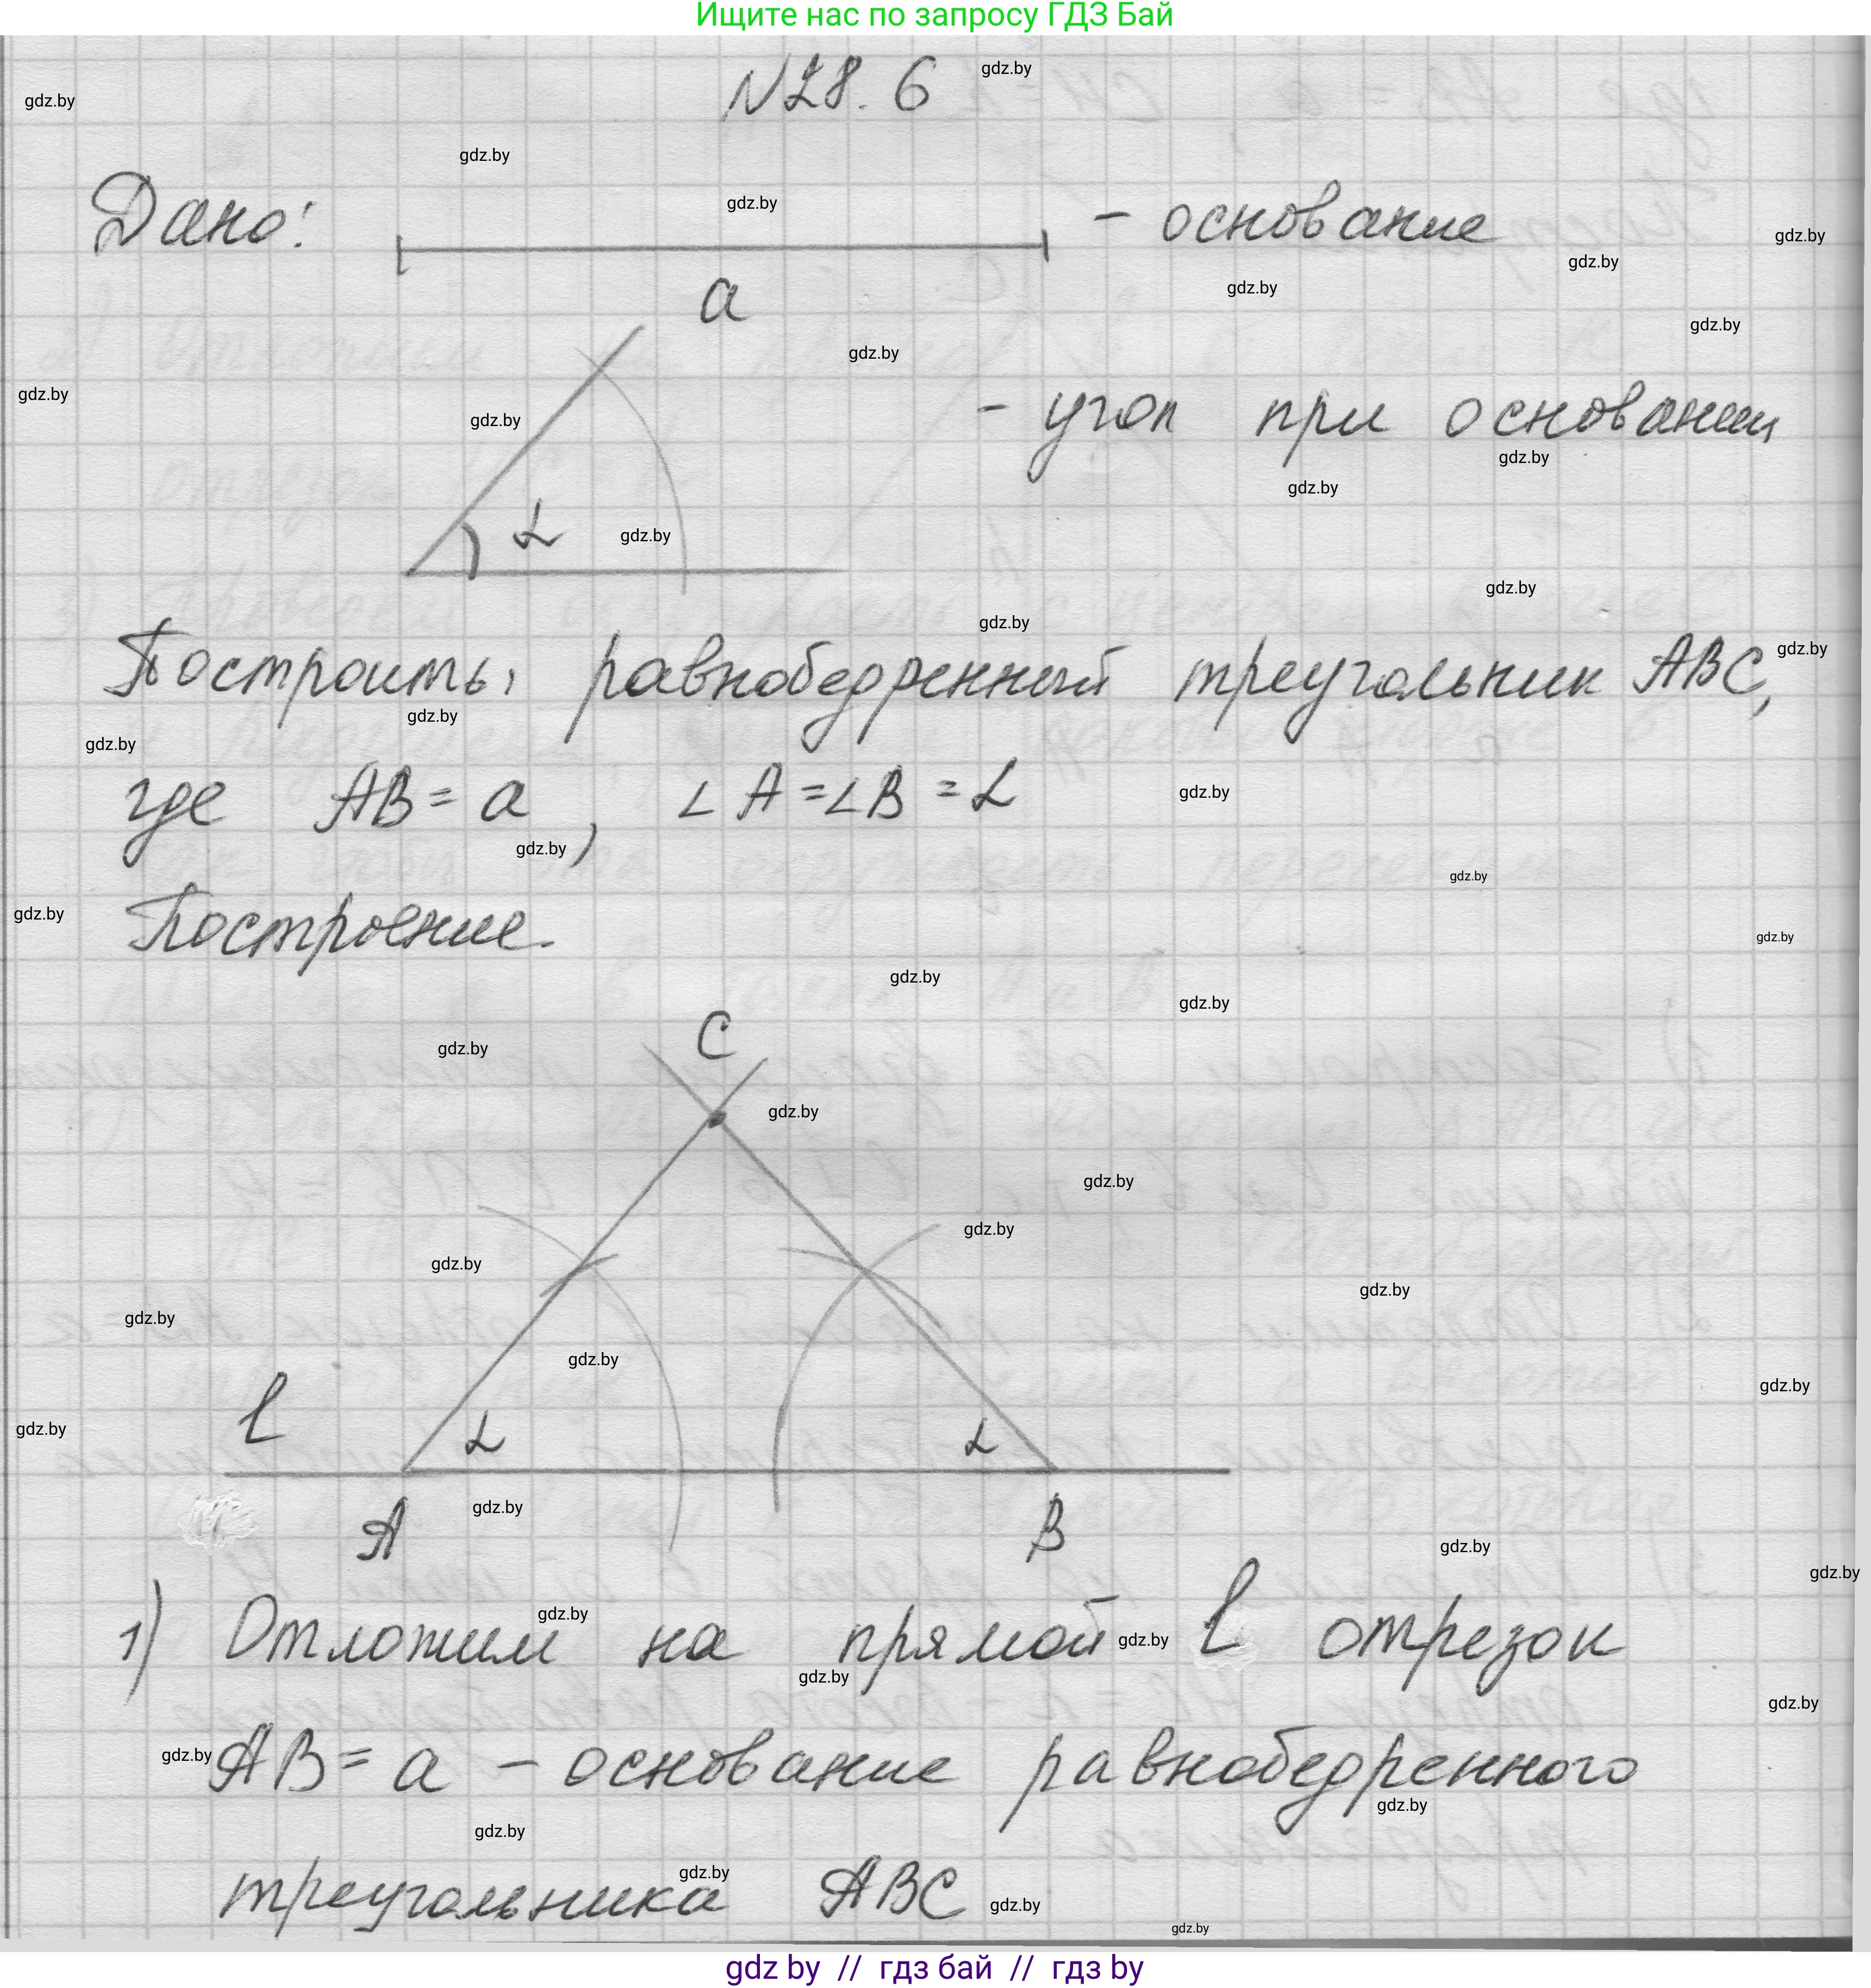 Ищите нас по запросу ГДЗ Бай
N28. 6
gdz.by
gdz.by
gdz.by
Дано: - основание
gdz.by
gdz.by
gdz.by
gdz.by
a
gdz.by
gdz.by
gdz.by
- угол при основании
gdz.by
gdz.by
gdz.by
α
gdz.by
gdz.by
gdz.by
Построить: равнобедренный треугольник ABC,
gdz.by
gdz.by
gdz.by
где AB = a, ∠A = ∠B = α
gdz.by
gdz.by
gdz.by
Построение.
gdz.by
gdz.by
gdz.by
gdz.by
C
gdz.by
gdz.by
gdz.by
gdz.by
gdz.by
gdz.by
gdz.by
gdz.by
gdz.by
l α α
gdz.by
gdz.by
A B
gdz.by
gdz.by
gdz.by
1) Отложим на прямой l отрезок
gdz.by
gdz.by
gdz.by
gdz.by
AB = a - основание равнобедренного
gdz.by
gdz.by
gdz.by
треугольника ABC
gdz.by
gdz.by
gdz.by
gdz by // гдз бай // гдз by